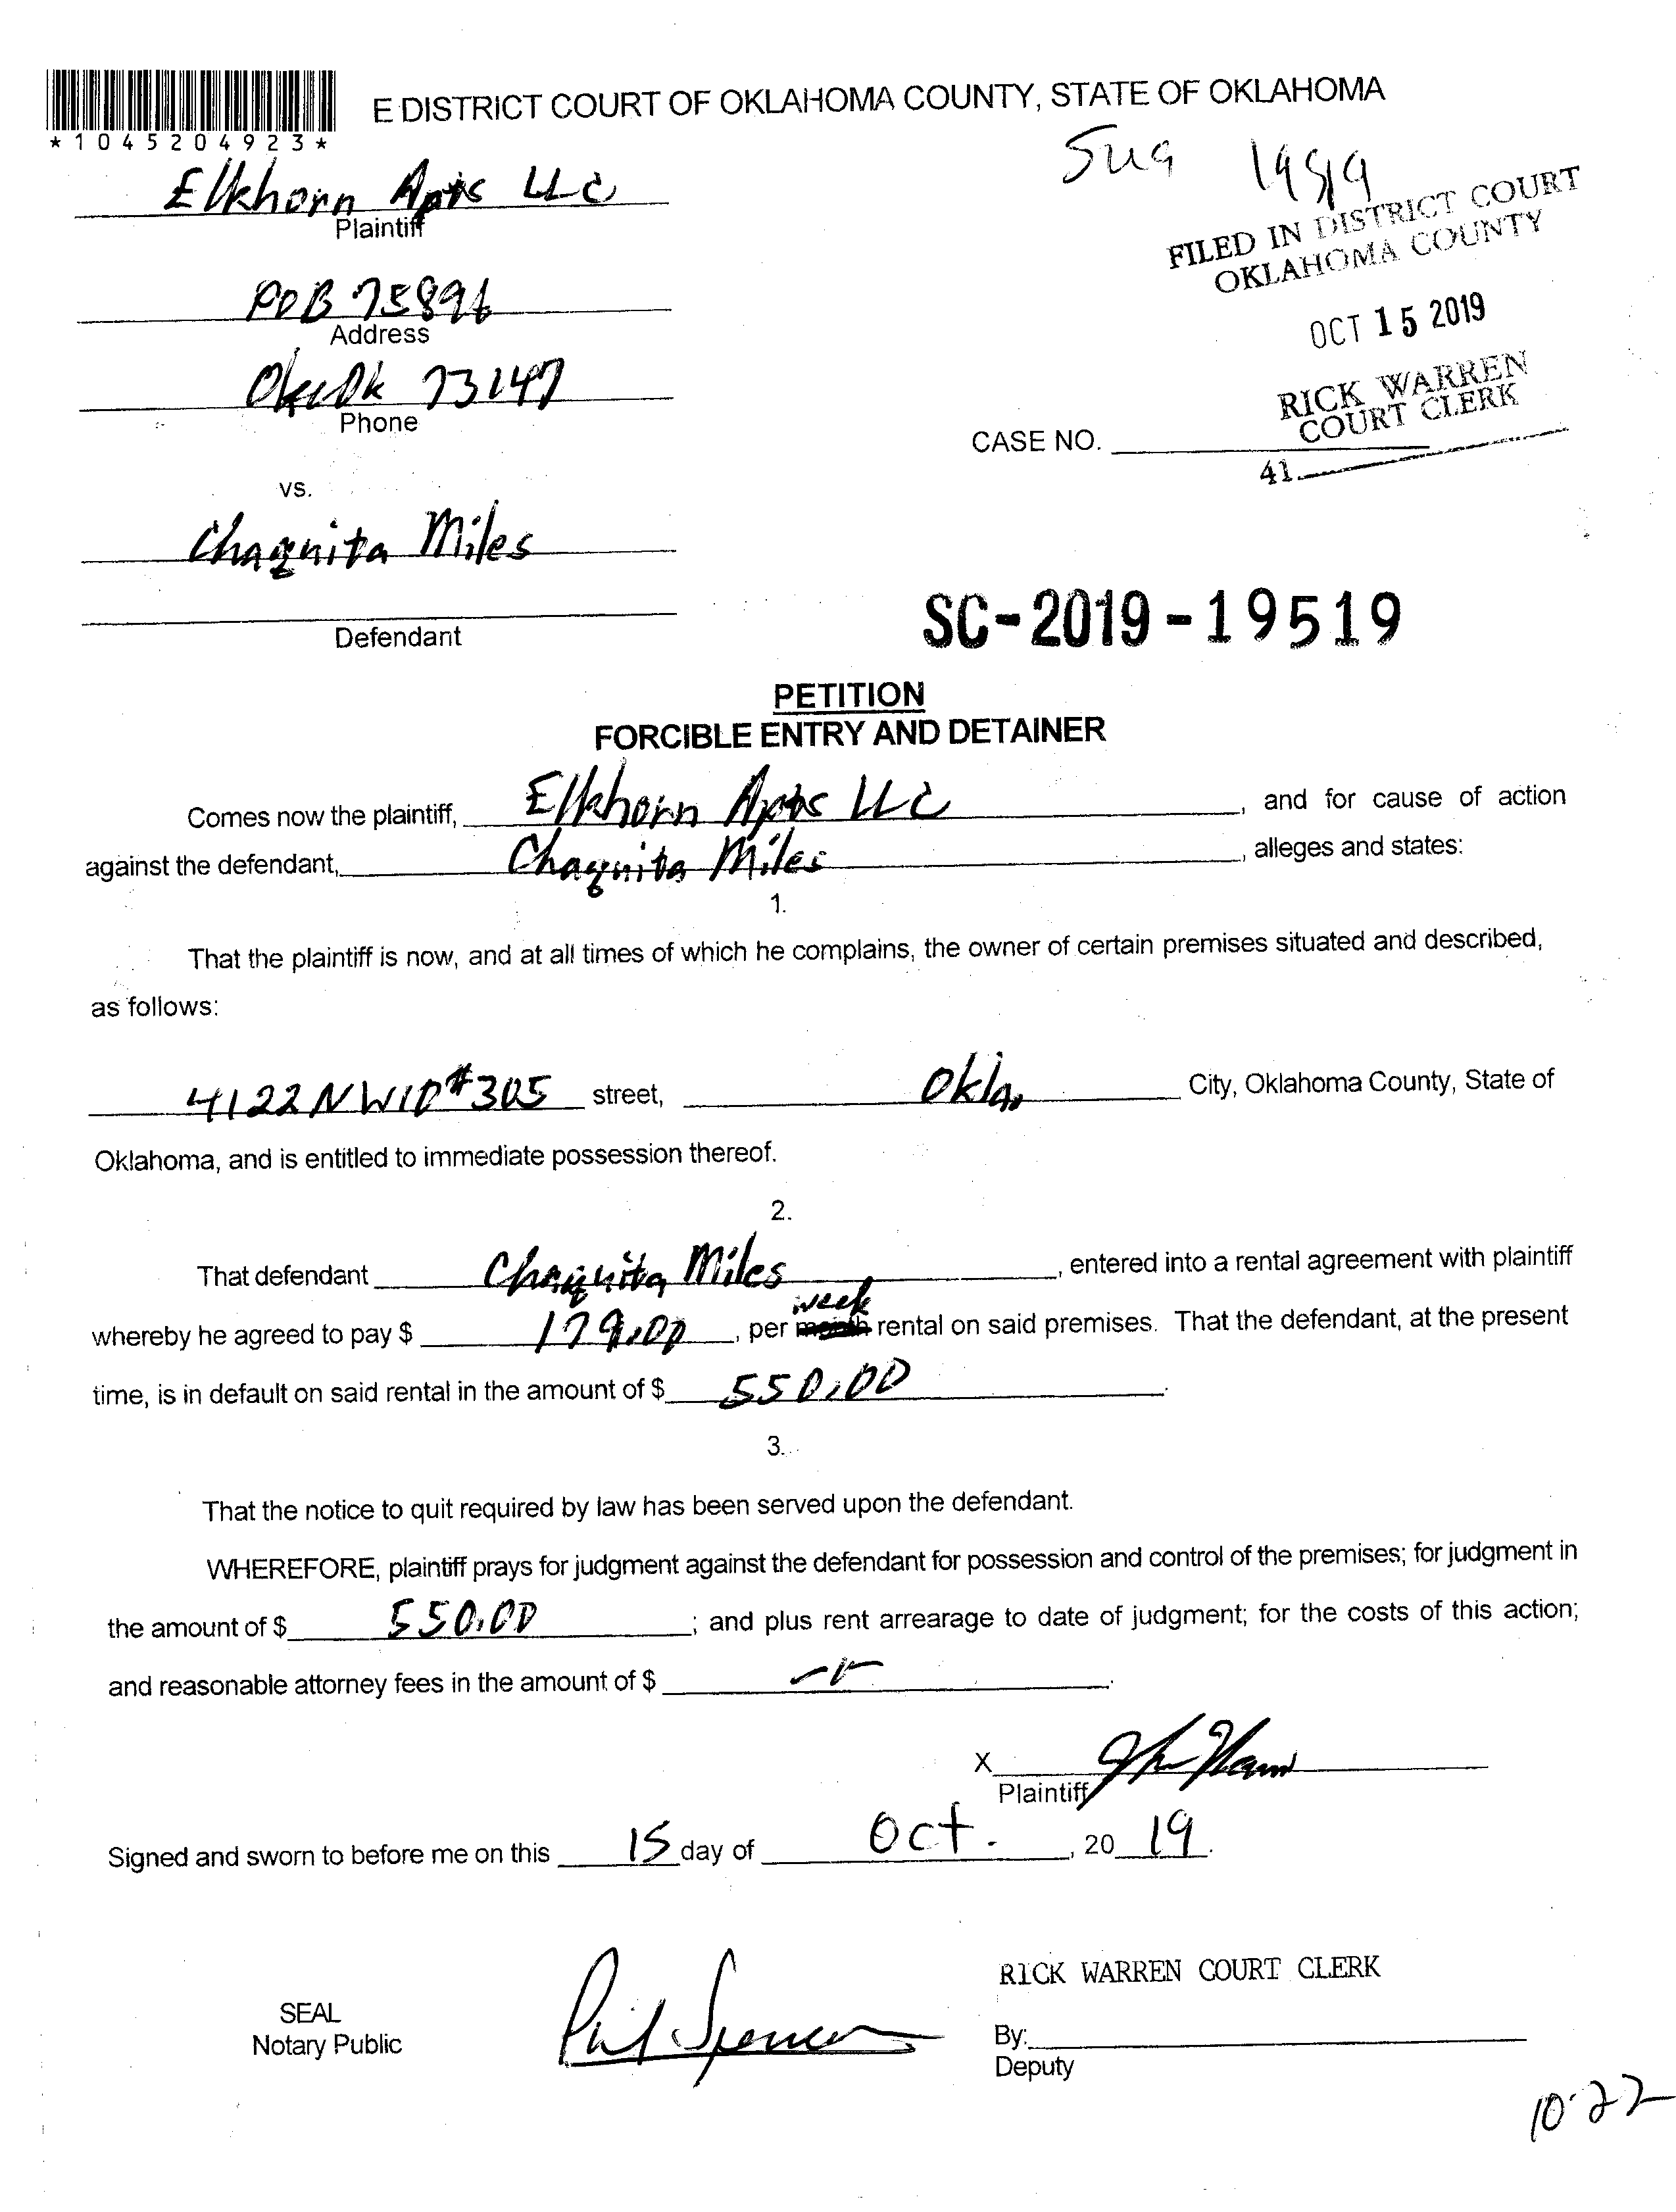 *1045204923*
E DISTRICT COURT OF OKLAHOMA COUNTY, STATE OF OKLAHOMA
Elkhorn Apts LLC
Plaintiff
FILED IN DISTRICT COURT
OKLAHOMA COUNTY
POB 75896
Address
OCT 15 2019
OkcOk 73147
Phone
RICK WARREN
COURT CLERK
CASE NO.
41
vs.
Chaqnita Miles
Defendant
SC-2019-19519
PETITION
FORCIBLE ENTRY AND DETAINER
Comes now the plaintiff, Elkhorn Apts LLC, and for cause of action
against the defendant, Chaqnita Miles, alleges and states:
1.
That the plaintiff is now, and at all times of which he complains, the owner of certain premises situated and described,
as follows:
4122 NW10 #305 street, Okla. City, Oklahoma County, State of
Oklahoma, and is entitled to immediate possession thereof.
2.
That defendant Chaqnita Miles, entered into a rental agreement with plaintiff
week
whereby he agreed to pay $ 179.00, per month rental on said premises. That the defendant, at the present
time, is in default on said rental in the amount of $ 550.00.
3.
That the notice to quit required by law has been served upon the defendant.
WHEREFORE, plaintiff prays for judgment against the defendant for possession and control of the premises; for judgment in
the amount of $ 550.00; and plus rent arrearage to date of judgment; for the costs of this action;
and reasonable attorney fees in the amount of $
X
Plaintiff
Signed and sworn to before me on this 15 day of Oct., 20 19.
RICK WARREN COURT CLERK
SEAL
Notary Public
Phil Spencer
By:
Deputy
10-22